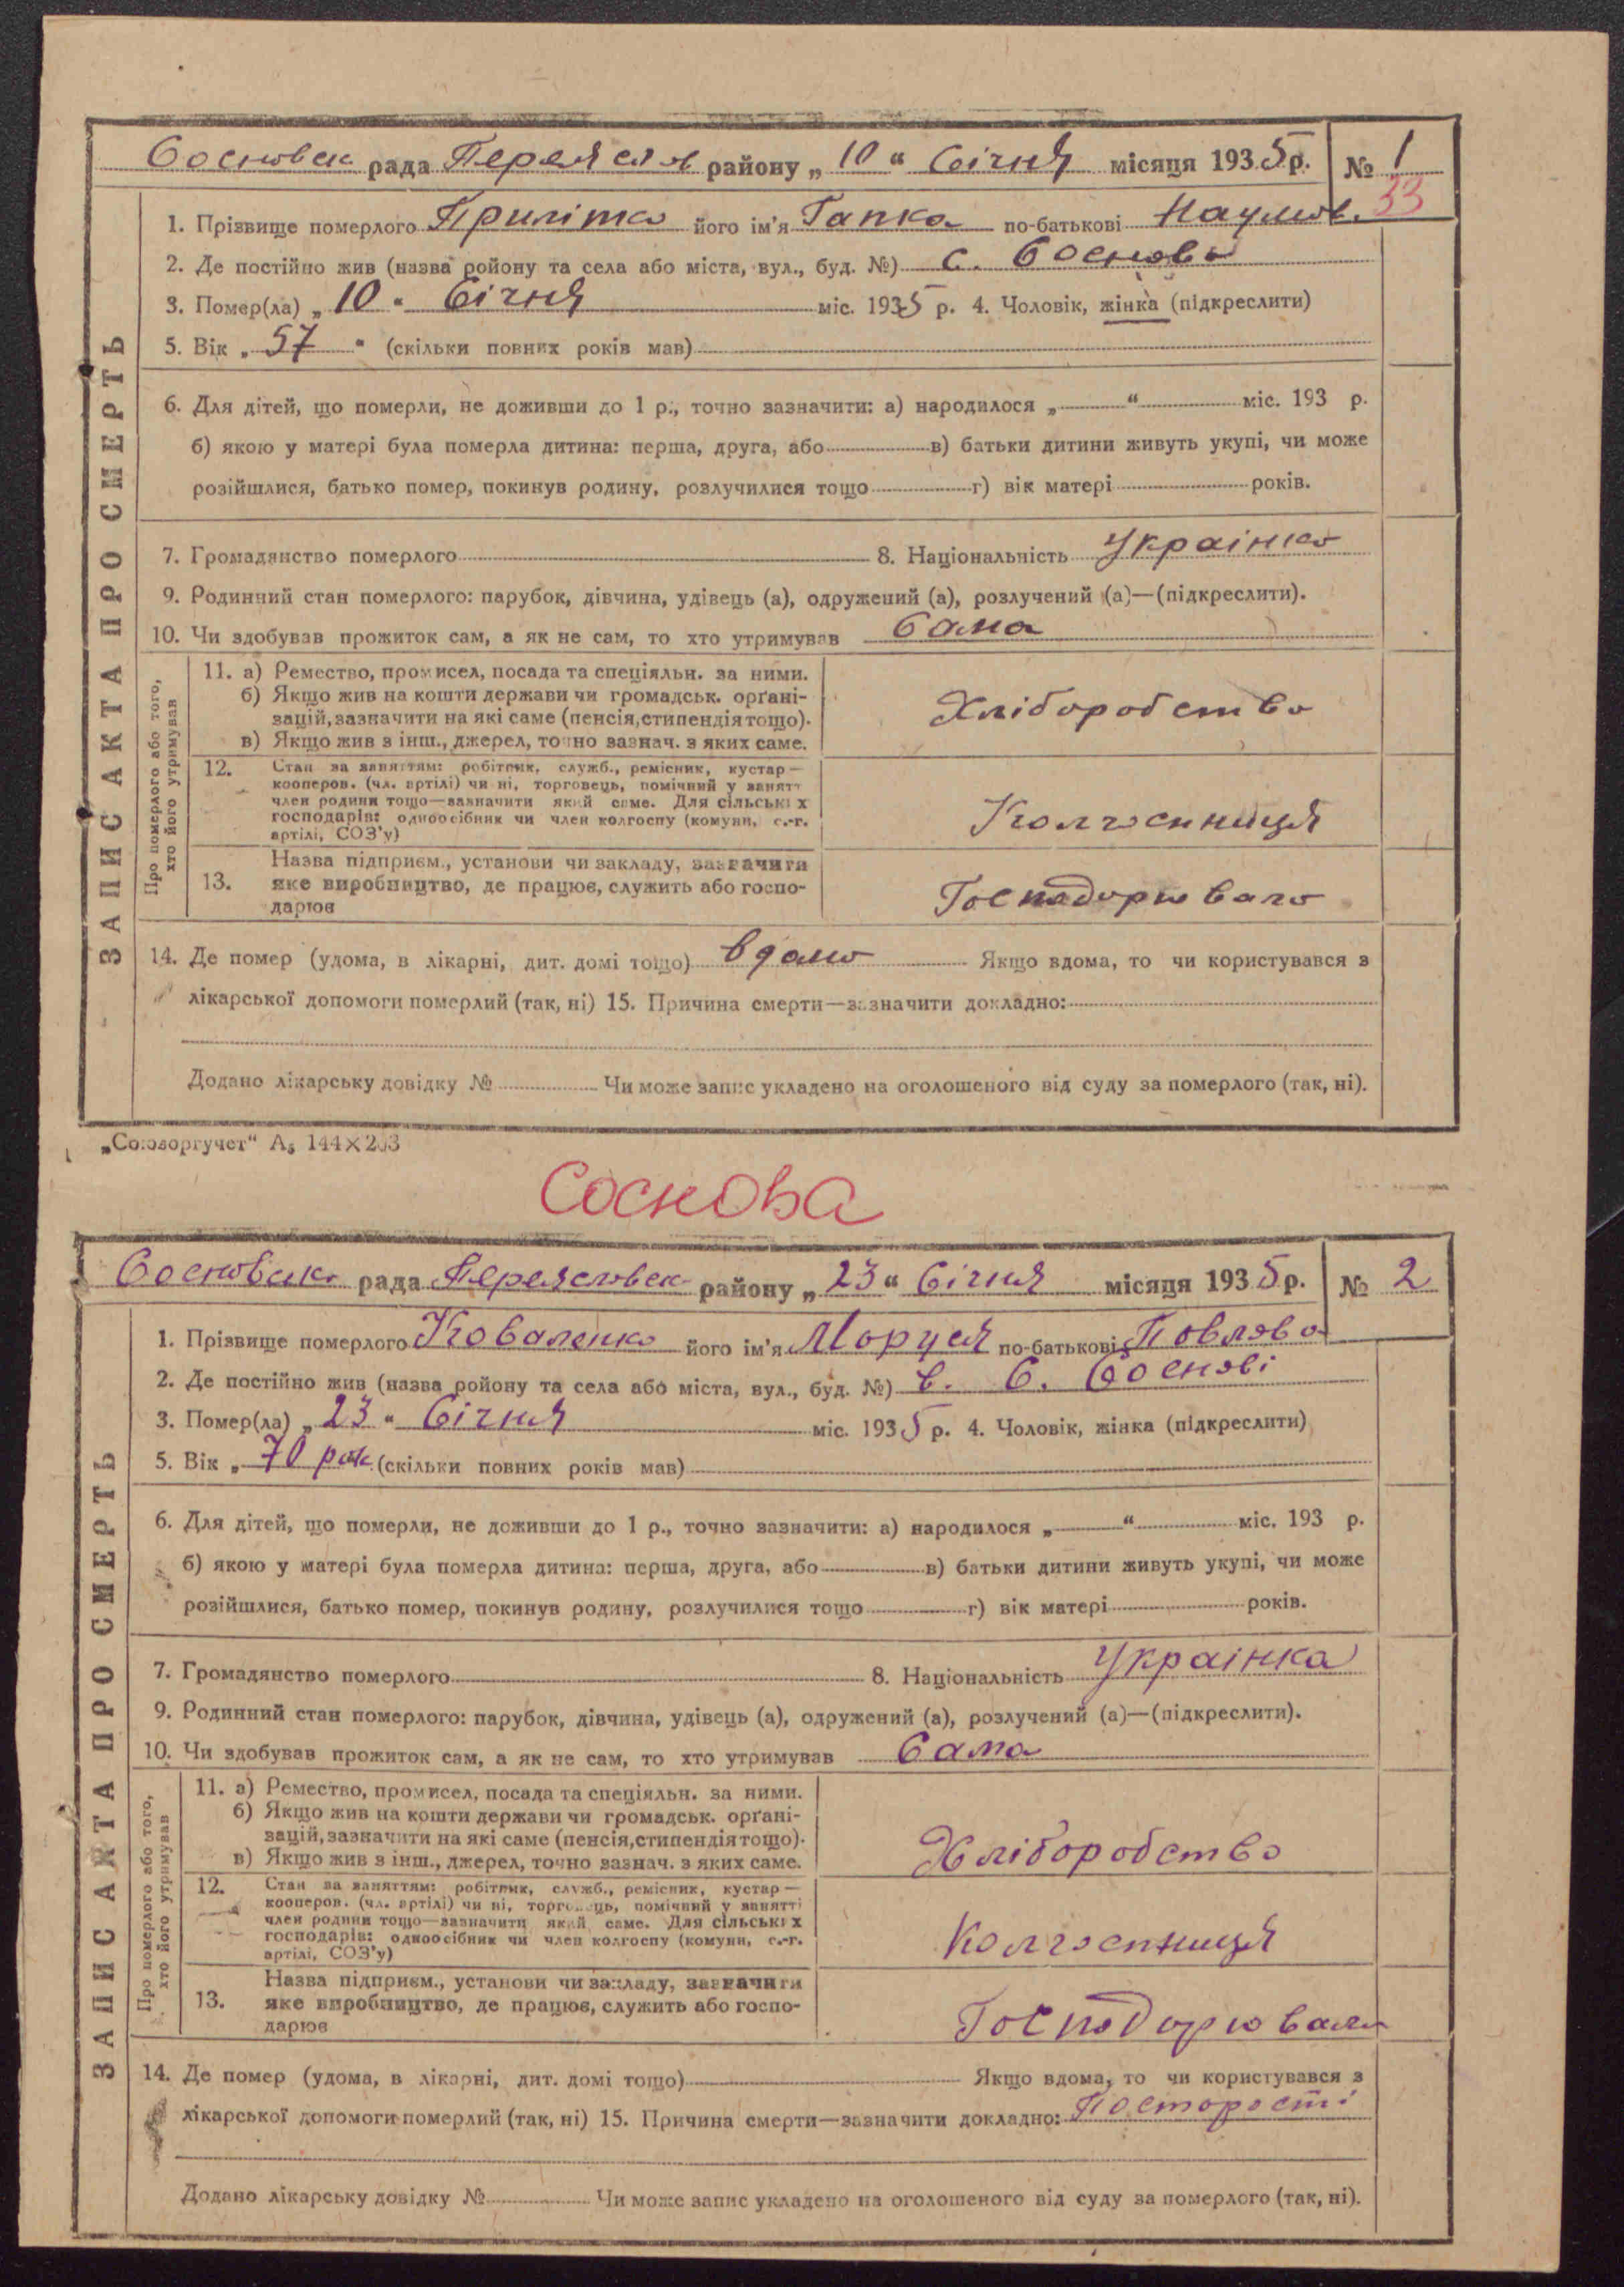 Сосновск рада Переяслов району „10“ Січня місяця 1935 р. № 1
33
1. Прізвище померлого Приліпка його ім'я Гапка по-батькові Наумов.
2. Де постійно жив (назва ройону та села або міста, вул., буд. №) с. Соснова
3. Помер(ла) „10“ Січня міс. 1935 р. 4. Чоловік, жінка (підкреслити)
5. Вік „57“ (скільки повних років мав)
6. Для дітей, що померли, не доживши до 1 р., точно зазначити: а) народилося „ “ міс. 193 р.
б) якою у матері була померла дитина: перша, друга, або в) батьки дитини живуть укупі, чи може
розійшлися, батько помер, покинув родину, розлучилися тощо г) вік матері років.
7. Громадянство померлого 8. Національність Українка
9. Родинний стан померлого: парубок, дівчина, удівець (а), одружений (а), розлучений (а)—(підкреслити).
10. Чи здобував прожиток сам, а як не сам, то хто утримував Сама
Про померлого або того,
хто його утримував
11. а) Ремество, промисел, посада та спеціяльн. за ними.
б) Якщо жив на кошти держави чи громадськ. орґані-
зацій, зазначити на які саме (пенсія, стипендія тощо).
в) Якщо жив з інш., джерел, точно зазнач. з яких саме.
Хліборобство
12. Стан за заняттям: робітник, служб., ремісник, кустар—
кооперов. (чл. артілі) чи ні, торговець, помічний у занятт
член родини тощо—зазначити який саме. Для сільських
господарів: одноосібник чи член колгоспу (комуни, с.-г.
артілі, СОЗ'у)
Колгоспниця
Назва підприєм., установи чи закладу, зазначити
13. яке виробництво, де працює, служить або госпо-
дарює
Господарювала
14. Де помер (удома, в лікарні, дит. домі тощо) вдома Якщо вдома, то чи користувався з
лікарської допомоги померлий (так, ні) 15. Причина смерти—зазначити докладно:
Додано лікарську довідку № Чи може запис укладено на оголошеного від суду за померлого (так, ні).
ЗАПИС АКТА ПРО СМЕРТЬ
„Союзоргучет“ А₅ 144×203
Соснова
Сосновска рада Переясловск району „23“ Січня місяця 1935 р. № 2
1. Прізвище померлого Коваленко його ім'я Маруся по-батькові Повлова
2. Де постійно жив (назва ройону та села або міста, вул., буд. №) в. С. Соснові
3. Помер(ла) „23“ Січня міс. 1935 р. 4. Чоловік, жінка (підкреслити)
5. Вік „70 рок (скільки повних років мав)
6. Для дітей, що померли, не доживши до 1 р., точно зазначити: а) народилося „ “ міс. 193 р.
б) якою у матері була померла дитина: перша, друга, або в) батьки дитини живуть укупі, чи може
розійшлися, батько помер, покинув родину, розлучилися тощо г) вік матері років.
7. Громадянство померлого 8. Національність Українка
9. Родинний стан померлого: парубок, дівчина, удівець (а), одружений (а), розлучений (а)—(підкреслити).
10. Чи здобував прожиток сам, а як не сам, то хто утримував Сама
Про померлого або того,
хто його утримував
11. а) Ремество, промисел, посада та спеціяльн. за ними.
б) Якщо жив на кошти держави чи громадськ. орґані-
зацій, зазначити на які саме (пенсія, стипендія тощо).
в) Якщо жив з інш., джерел, точно зазнач. з яких саме.
Хліборобство
12. Стан за заняттям: робітник, служб., ремісник, кустар—
кооперов. (чл. артілі) чи ні, торговець, помічний у занятті
член родини тощо—зазначити який саме. Для сільських
господарів: одноосібник чи член колгоспу (комуни, с.-г.
артілі, СОЗ'у)
Колгоспниця
Назва підприєм., установи чи закладу, зазначити
13. яке виробництво, де працює, служить або госпо-
дарює
Господорювала
14. Де помер (удома, в лікарні, дит. домі тощо) Якщо вдома, то чи користувався з
лікарської допомоги померлий (так, ні) 15. Причина смерти—зазначити докладно: По старості
Додано лікарську довідку № Чи може запис укладено на оголошеного від суду за померлого (так, ні).
ЗАПИС АКТА ПРО СМЕРТЬ